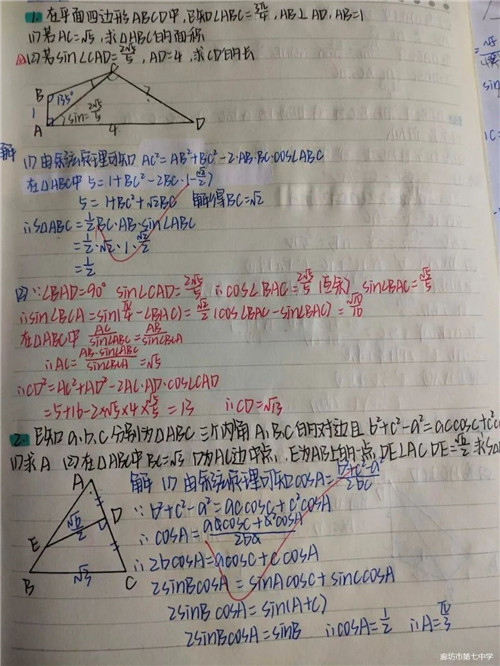 1. 在平面四边形ABCD中,已知∠ABC=3π/4, AB⊥AD, AB=1
(1)若AC=√5,求△ABC的面积
(2)若sin∠CAD=2√5/5, AD=4,求CD的长
B C
1 135° ?
sin=2√5/5
A 4 D
解 (1)由余弦定理可知 AC²=AB²+BC²-2·AB·BC·cos∠ABC
在△ABC中 5=1+BC²-2BC·1·(-√2/2)
5=1+BC²+√2BC 解得BC=√2
∴S△ABC=1/2 BC·AB·sin∠ABC
=1/2·√2·1·√2/2
=1/2
(2)∵∠BAD=90° sin∠CAD=2√5/5 ∴cos∠BAC=2√5/5 sin∠BAC=√5/5
∴sin∠BCA=sin(π/4-∠BAC)=√2/2(cos∠BAC-sin∠BAC)=√10/10
在△ABC中 AC/sin∠ABC=AB/sin∠BCA
∴AC=AB·sin∠ABC/sin∠BCA=√5
∴CD²=AC²+AD²-2AC·AD·cos∠CAD
=5+16-2×√5×4×√5/5=13 ∴CD=√13
2. 已知a,b,c分别为△ABC三个内角A,B,C的对边且b²+c²-a²=accosC+c²c
(1)求A (2)在△ABC中BC=√3 D为AC边中点, E为AB上的一点, DE⊥AC DE=√6/2 求S△
A
√6/2 D
E
B √3 C
解 (1)由余弦定理可知cosA=b²+c²-a²/2bc
∵b²+c²-a²=accosC+c²cosA
∴cosA=accosC+c²cosA/2bc
∴2bcosA=acosC+ccosA
2sinBcosA=sinAcosC+sinCcosA
2sinBcosA=sin(A+C)
2sinBcosA=sinB ∴cosA=1/2 ∴A=π/3
廊坊市第七中学